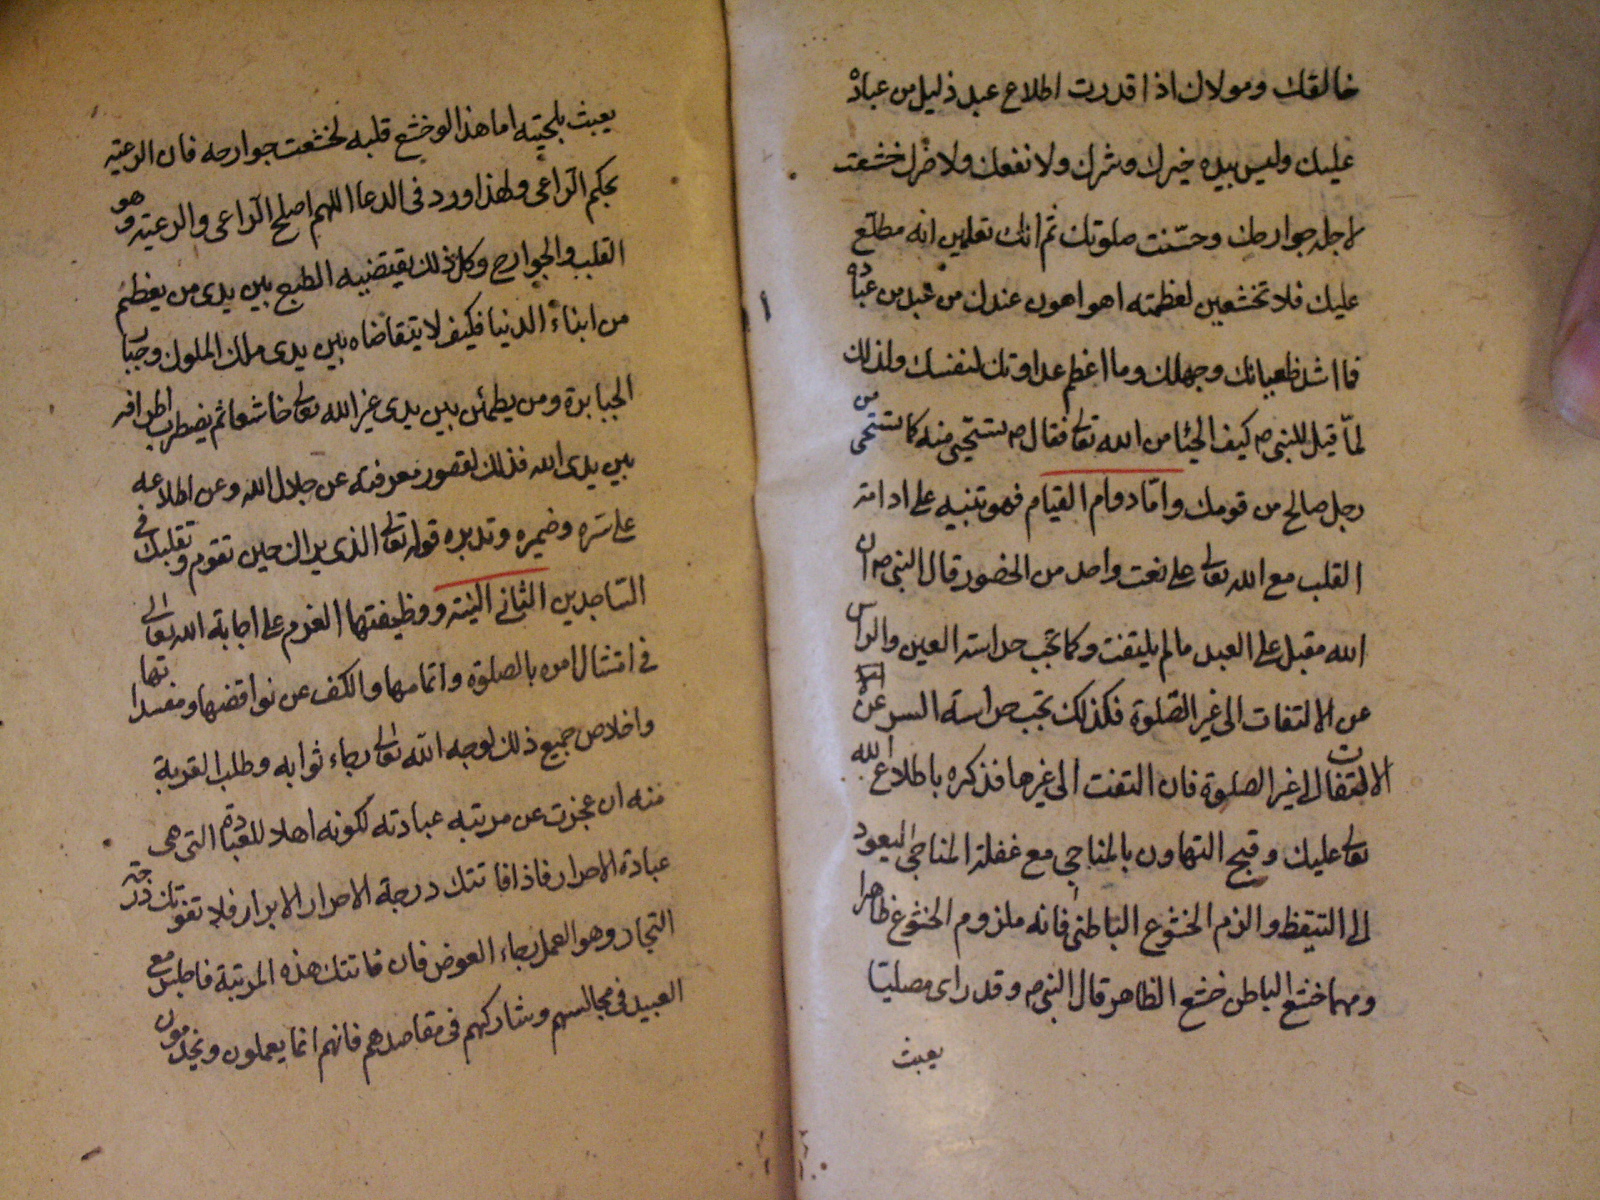 خالقك ومولاك اذا قدرت اطلاع عبد ذليل من عباده
عليك وليس بيده خيرك وشرك ولا نفعك ولا ضرك خشعت
لاجله جوارحك وحسّنت صلوتك ثم انك تعلمين انه مطلّع
عليك فلا تخشعين لعظمته اهو اهون عندك من عبد من عباده
فما اشد طغيانك وجهلك وما اعظم عداوتك لنفسك ولذلك
لمّا قيل للنبي ص كيف الحيا من الله تعالى فقال ص تستحيى منه كما تستحيى من
رجل صالح من قومك وامّا دوام القيام فهو تنبيه على ادامة
القلب مع الله تعالى على نعت واحد من الحضور قال النبي ص ان
الله مقبل على العبد ما لم يلتفت وكما تجب حراسة العين والراس
عن الالتفات الى غير الصّلوة فكذلك تجب حراسة السر عن
الالتفات الى غير الصلوة فان التفت الى غيرها فذكره باطلاع الله
تعالى عليك وقبح التهاون بالمناجى مع غفلة المناجى ليعود
الى التيقظ والزم الخشوع الباطنى فانه ملزوم الخشوع ظاهرا
ومهما خشع الباطن خشع الظاهر قال النبي ص وقد راى مصليّا
يعبث
يعبث بلحيته اما هذا لو خشع قلبه لخشعت جوارحه فان الرعيّه
بحكم الرّاعى ولهذا ورد فى الدعا اللهم اصلح الرّاعى والرعيّه وهو
القلب والجوارح وكل ذلك يقتضيه الطبع بين يدى من يعظم
من ابناء الدنيا فكيف لا يتقاضاه بين يدى ملك الملوك وجبّار
الجبابرة ومن يطمئن بين يدى غير الله تعالى خاشعا ثم يضطرب اطرافه
بين يدى الله فذلك لقصور معرفته عن جلال الله وعن اطلاعه
على سّره وضميره وتدبره قوله تعالى الذى يراك حين تقوم وتقلبك فى
السّاجدين الثانى النيّة ووظيفتها العزم على اجابة الله تعالى
فى امتثال امره بالصلوة واتمامها والكف عن نواقضها ومفسداتها
واخلاص جميع ذلك لوجه الله تعالى رجاء ثوابه وطلب القربة
منه ان عجزت عن مرتبه عبادته لكونه اهلا للعبادة التى هى
عبادة الاحرار فاذا فاتتك درجة الاحرار الابرار فلا تفوتك درجة
التجار وهو العمل رجاء العوض فان فاتتك هذه المرتبة فاجلس مع
العبيد فى مجالسهم وشاركهم فى مقاصدهم فانهم انما يعملون ويخدمون